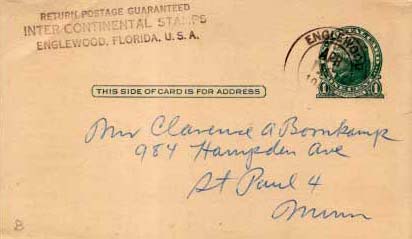 RETURN POSTAGE GUARANTEED
INTER-CONTINENTAL STAMPS
ENGLEWOOD, FLORIDA, U. S. A.
ENGLEWOOD
APR
THIS SIDE OF CARD IS FOR ADDRESS
1 1
Mr Clarence A Bornkamp
984 Hampden Ave
St Paul 4
Minn
B